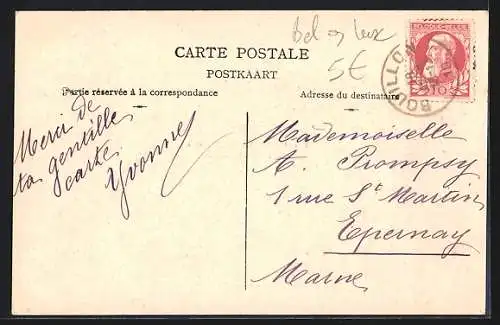 Bel og Lux
5€
CARTE POSTALE
POSTKAART
Partie réservée à la correspondance
Adresse du destinataire
BELGIQUE-BELGIË
10
BOUILLON
Merci de
ta gentille
carte
Yvonne
Mademoiselle
A. Prompsy
1 rue St Martin
Epernay
Marne